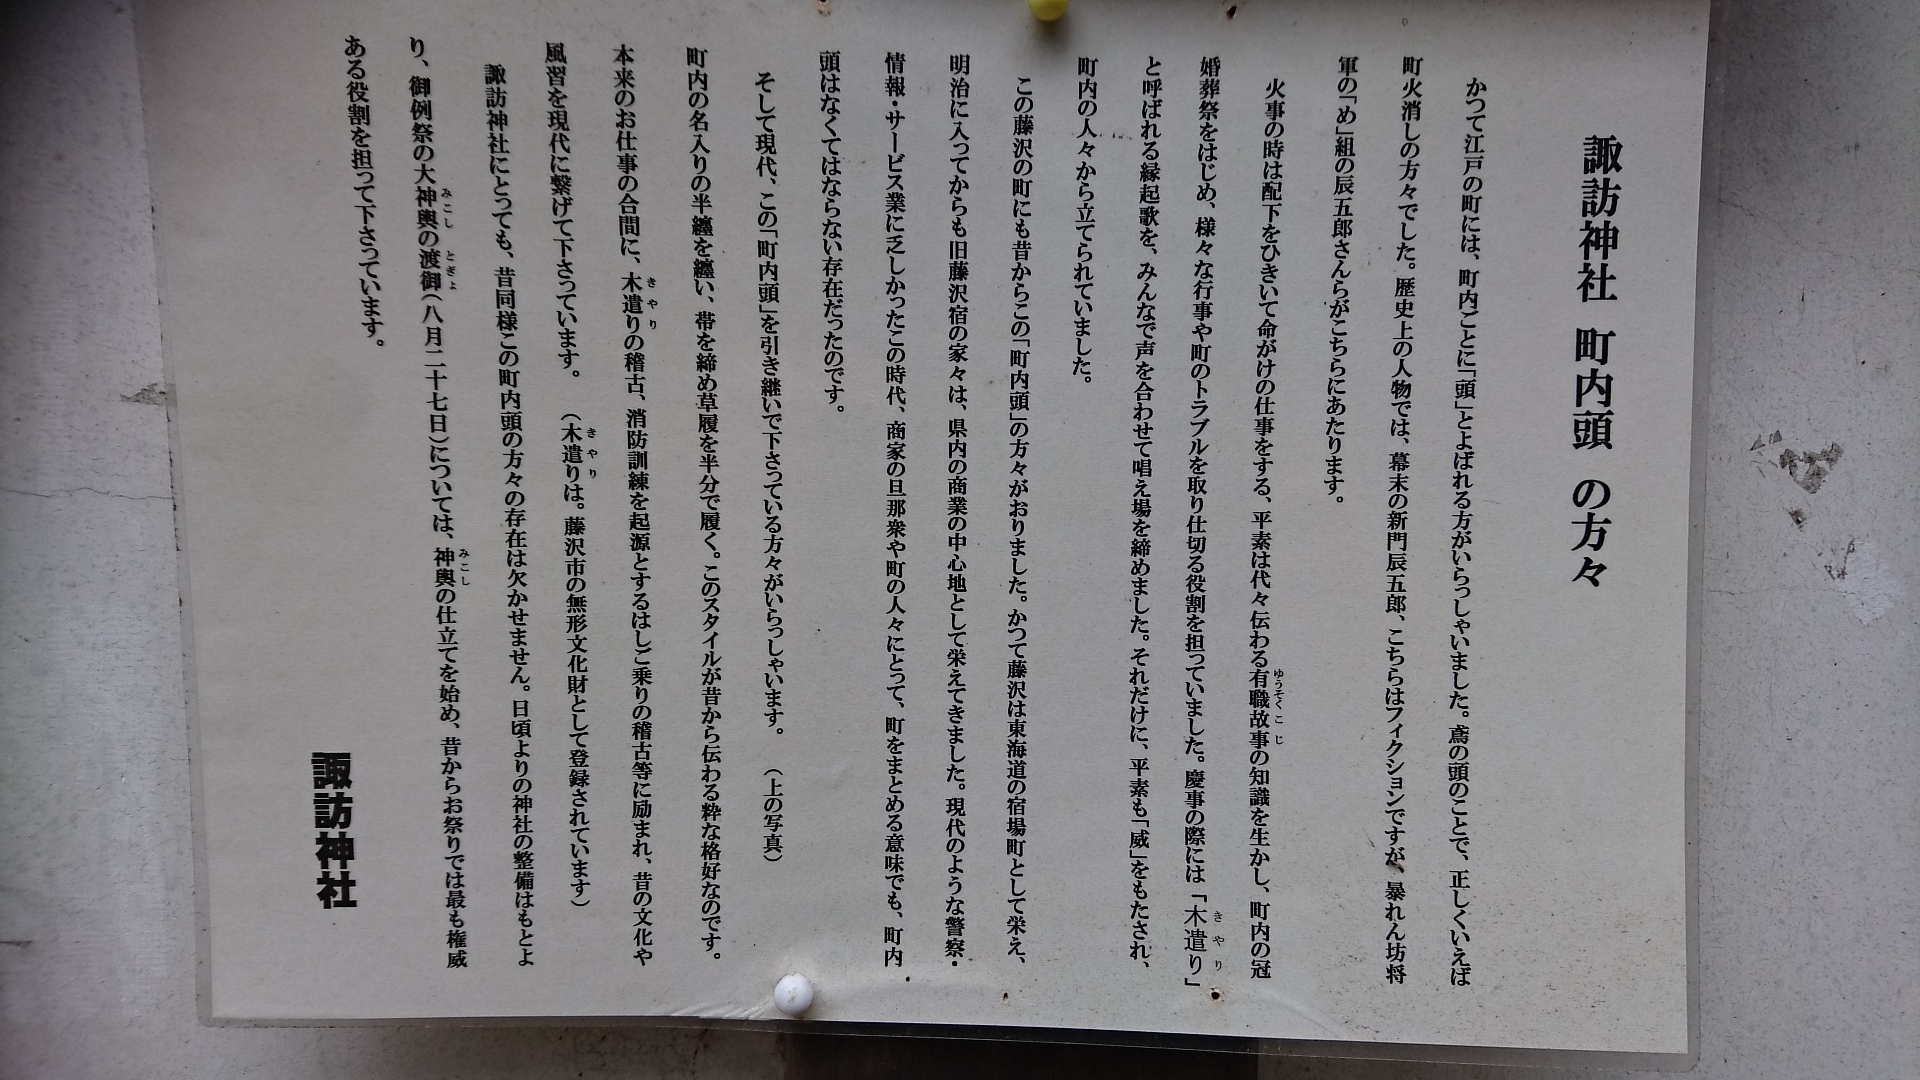 諏訪神社 町内頭 の方々
かつて江戸の町には、町内ごとに「頭」とよばれる方がいらっしゃいました。鳶の頭のことで、正しくいえば
町火消しの方々でした。歴史上の人物では、幕末の新門辰五郎、こちらはフィクションですが、暴れん坊将
軍の「め」組の辰五郎さんらがこちらにあたります。
火事の時は配下をひきいて命がけの仕事をする、平素は代々伝わる有職故事の知識を生かし、町内の冠
ゆうそくこじ
婚葬祭をはじめ、様々な行事や町のトラブルを取り仕切る役割を担っていました。慶事の際には「木遣り」
きやり
と呼ばれる縁起歌を、みんなで声を合わせて唱え場を締めました。それだけに、平素も「威」をもたされ、
町内の人々から立てられていました。
この藤沢の町にも昔からこの「町内頭」の方々がおりました。かつて藤沢は東海道の宿場町として栄え、
明治に入ってからも旧藤沢宿の家々は、県内の商業の中心地として栄えてきました。現代のような警察・
情報・サービス業に乏しかったこの時代、商家の旦那衆や町の人々にとって、町をまとめる意味でも、町内
頭はなくてはならない存在だったのです。
そして現代、この「町内頭」を引き継いで下さっている方々がいらっしゃいます。 (上の写真)
町内の名入りの半纏を纏い、帯を締め草履を半分で履く。このスタイルが昔から伝わる粋な格好なのです。
本来のお仕事の合間に、木遣りの稽古、消防訓練を起源とするはしご乗りの稽古等に励まれ、昔の文化や
きやり
風習を現代に繋げて下さっています。 (木遣りは。藤沢市の無形文化財として登録されています)
きやり
諏訪神社にとっても、昔同様この町内頭の方々の存在は欠かせません。日頃よりの神社の整備はもとよ
り、御例祭の大神輿の渡御(八月二十七日)については、神輿の仕立てを始め、昔からお祭りでは最も権威
みこし とぎょ みこし
ある役割を担って下さっています。
諏訪神社